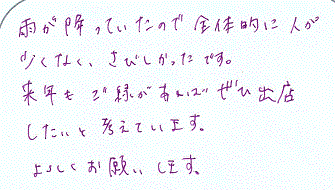 雨が降っていたので全体的に人が
少くなく、さびしかったです。
来年もご縁があればぜひ出店
したいと考えています。
よろしくお願いします。